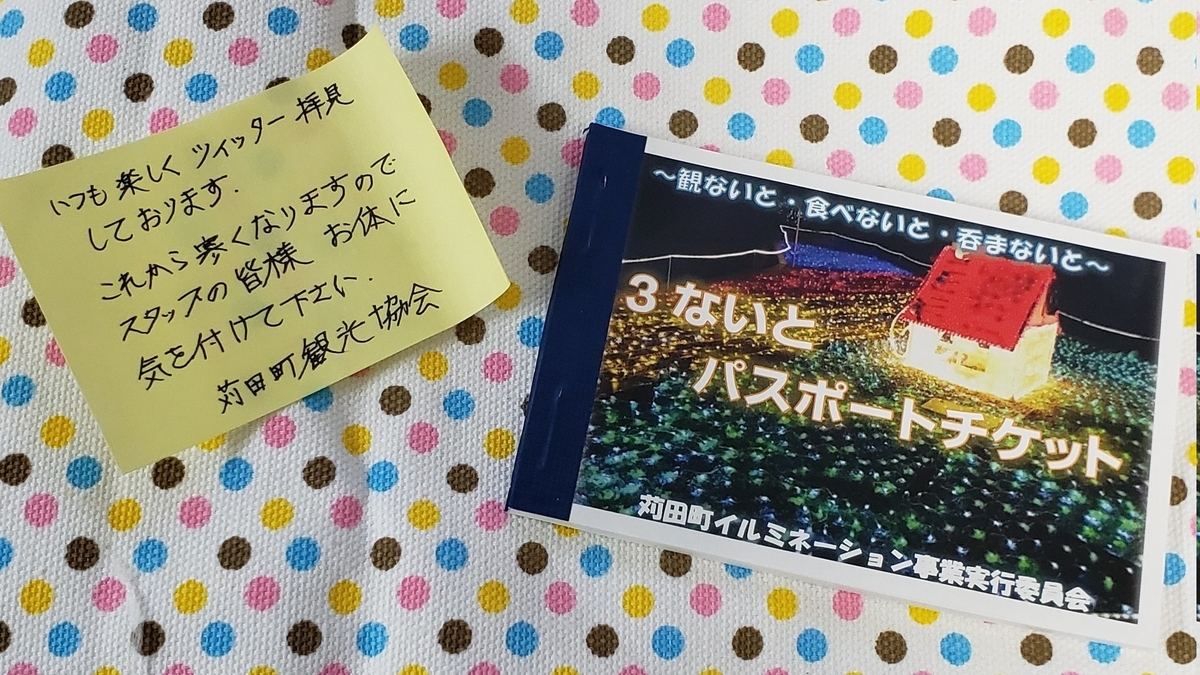 いつも楽しくツィッター拝見
しております.
これから寒くなりますので
スタッフの皆様 お体に
気を付けて下さい.
苅田町観光協会
～観ないと・食べないと・呑まないと～
3ないと
パスポートチケット
苅田町イルミネーション事業実行委員会